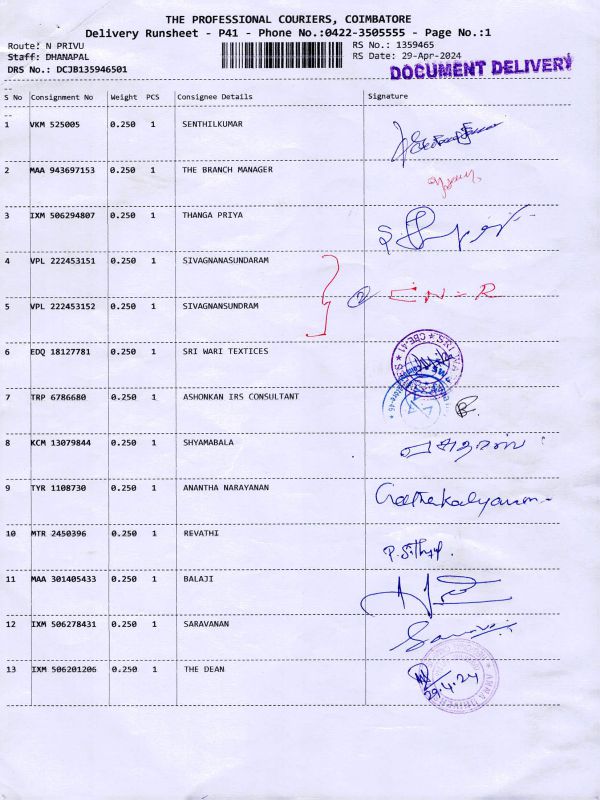 THE PROFESSIONAL COURIERS, COIMBATORE
Delivery Runsheet - P41 - Phone No.:0422-3505555 - Page No.:1
Route: N PRIVU RS No.: 1359465
Staff: DHANAPAL RS Date: 29-Apr-2024
DRS No.: DCJB135946501 DOCUMENT DELIVERY
--
S No Consignment No Weight PCS Consignee Details Signature
--
1 VKM 525005 0.250 1 SENTHILKUMAR
2 MAA 943697153 0.250 1 THE BRANCH MANAGER
3 IXM 506294807 0.250 1 THANGA PRIYA
4 VPL 222453151 0.250 1 SIVAGNANASUNDARAM
5 VPL 222453152 0.250 1 SIVAGNANSUNDRAM
6 EDQ 18127781 0.250 1 SRI WARI TEXTICES
7 TRP 6786680 0.250 1 ASHONKAN IRS CONSULTANT
8 KCM 13079844 0.250 1 SHYAMABALA
9 TYR 1108730 0.250 1 ANANTHA NARAYANAN
10 MTR 2450396 0.250 1 REVATHI
11 MAA 301405433 0.250 1 BALAJI
12 IXM 506278431 0.250 1 SARAVANAN
13 IXM 506201206 0.250 1 THE DEAN 29.4.24